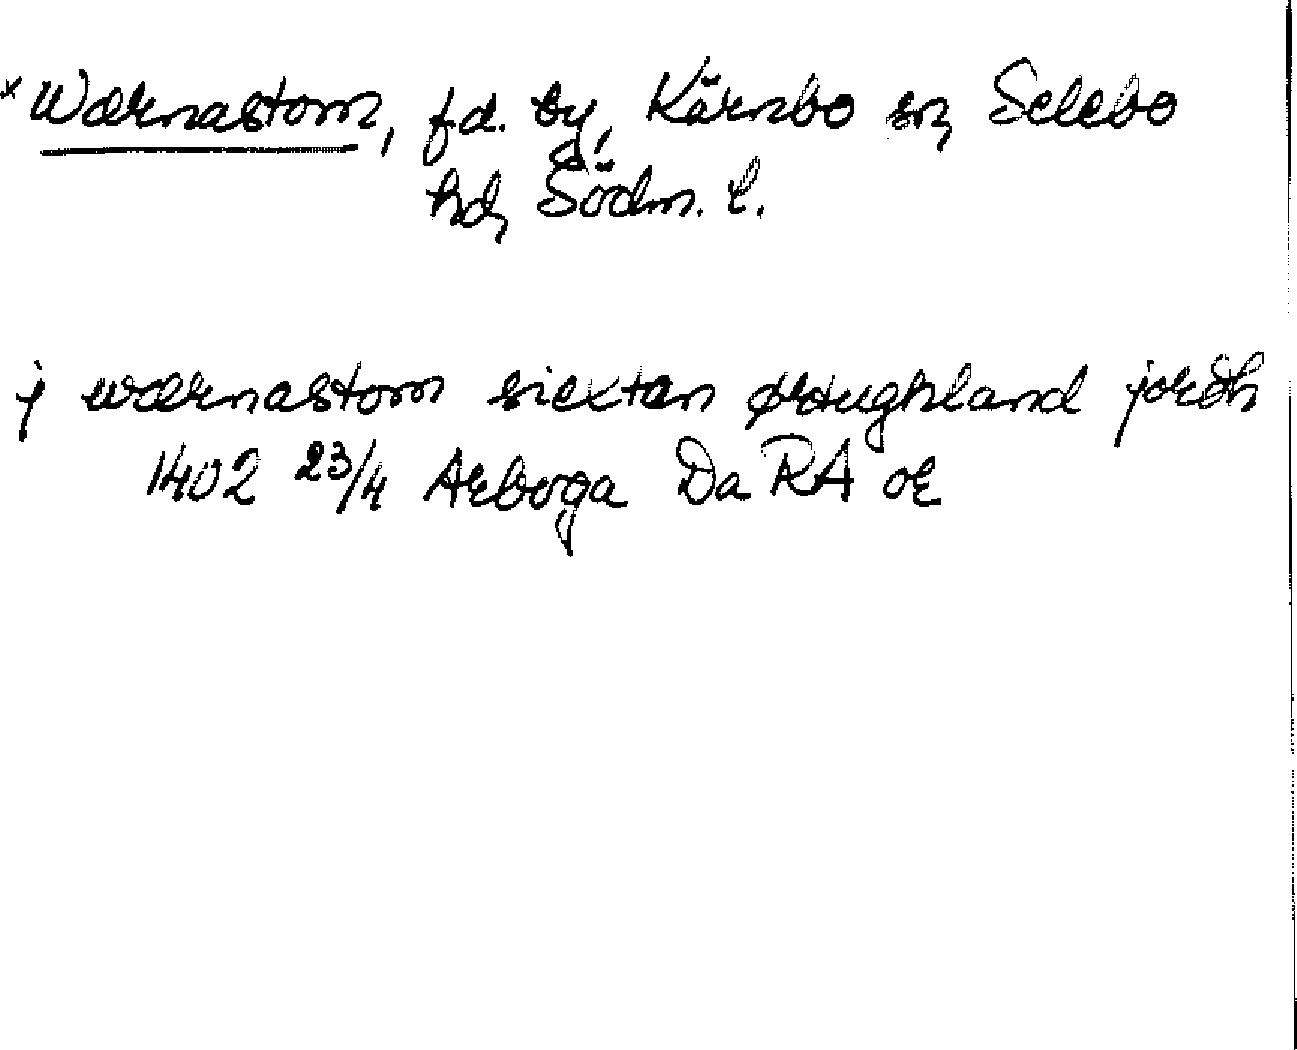 * Wærnastom, f.d. by, Kärnbo sn, Selebo
hd, Södm. l.
j wærnastom siextan ørtughland jordh
1402 23/4 Arboga Da RA or